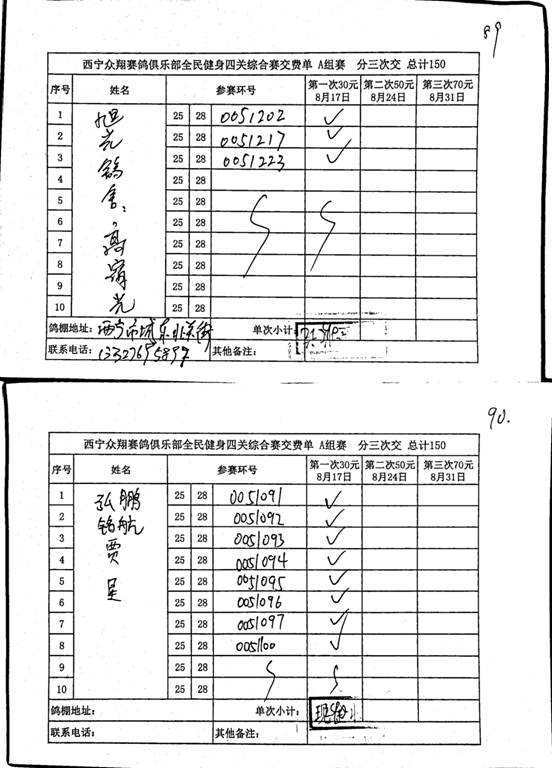 89
西宁众翔赛鸽俱乐部全民健身四关综合赛交费单 A组赛 分三次交 总计150
序号 姓名 参赛环号 第一次30元 8月17日 第二次50元 8月24日 第三次70元 8月31日
1 25 28 0051202 ✓
2 25 28 0051217 ✓
3 25 28 0051223 ✓
4 25 28
5 25 28
6 25 28
7 25 28
8 25 28
9 25 28
10 25 28
旭光鸽舍:高宵光
鸽棚地址: 西宁市城东北京街 单次小计:
联系电话: 其他备注:
90.
西宁众翔赛鸽俱乐部全民健身四关综合赛交费单 A组赛 分三次交 总计150
序号 姓名 参赛环号 第一次30元 8月17日 第二次50元 8月24日 第三次70元 8月31日
1 25 28 0051091 ✓
2 25 28 0051092 ✓
3 25 28 0051093 ✓
4 25 28 0051094 ✓
5 25 28 0051095 ✓
6 25 28 0051096 ✓
7 25 28 0051097 ✓
8 25 28 0051100 ✓
9 25 28
10 25 28
弘鹏
铭航
贾
鸽棚地址: 单次小计: 现
联系电话: 其他备注: